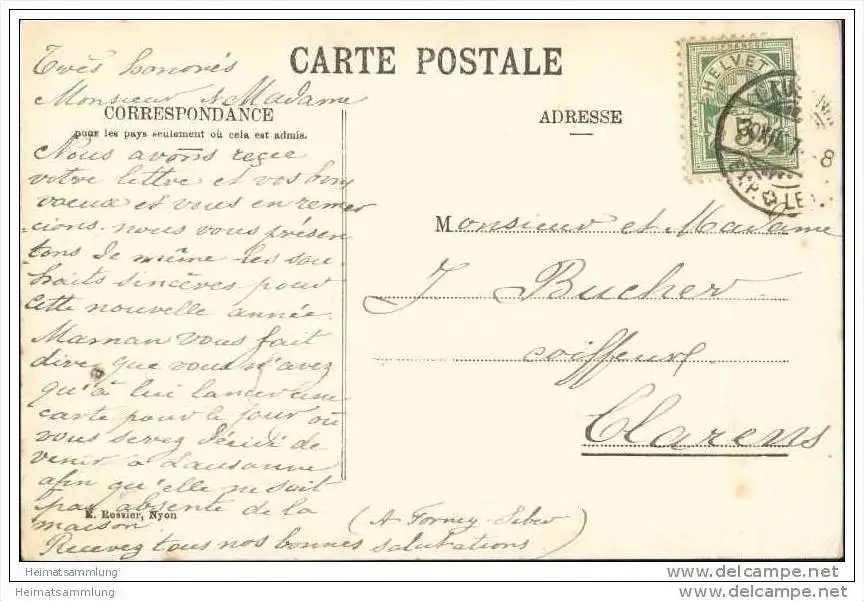 CARTE POSTALE
Très honorés
Monsieur & Madame
CORRESPONDANCE
pour les pays seulement où cela est admis.
Nous avons reçce
votre lettre et vos bons
voeux et vous en remer
cions. nous vous présen
tons de même les sou
haits sincères pour
cette nouvelle année.
Maman vous fait
dire que vous n'avez
qu'à lui lancer une
carte pour le jour où
vous serez décidé de
venir à Lausanne
afin qu'elle ne soit
pas absente de la
maison.
Recevez tous nos bonnes salutations
(A Forney
K. Rosvier, Nyon
ADRESSE
HELVETIA
FRANCO
EXP. LE
Monsieur et Madame
J Bucher
coiffeur
Clarens
Heimatsammlung
Heimatsammlung
delcampe.net
delcampe.net